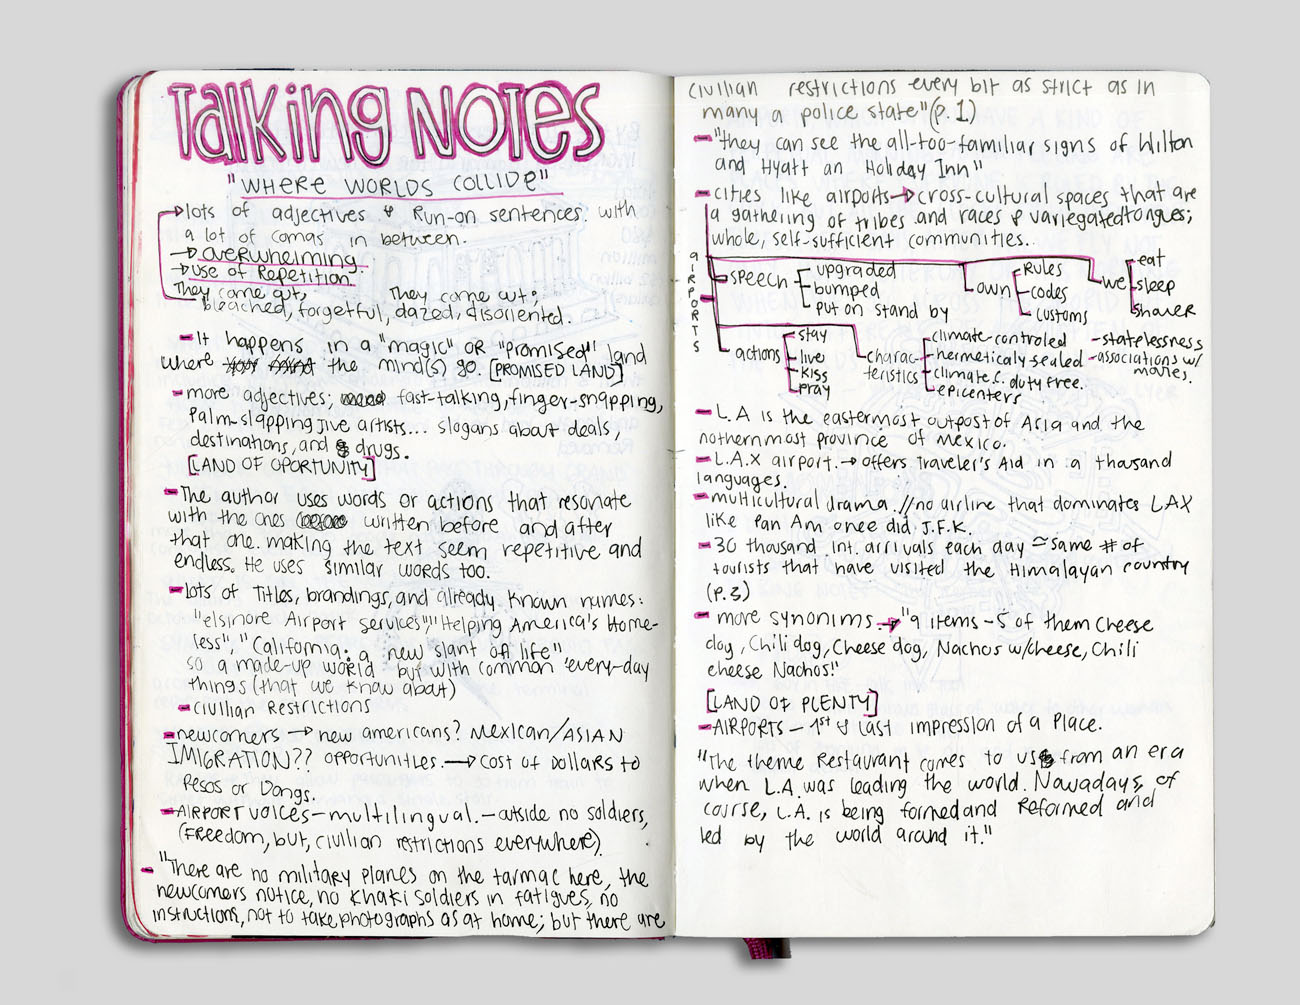 Talking Notes
"WHERE WORLDS COLLIDE"
lots of adjectives & Run-on sentences. with
a lot of comas in between.
→ overwhelming.
→ Use of Repetition.
They come out, They come out;
bleached, forgetful, dazed, disoriented.
- It happens in a "magic" OR "promised" land
where the mind(s) go. [PROMISED LAND]
- more adjectives; fast-talking, finger-snapping,
Palm-slapping jive artists... slogans about deals,
destinations, and drugs.
[LAND OF OPORTUNITY]
- The author uses words or actions that resonate
with the ones written before and after
that one. making the text seem repetitive and
endless. He uses similar words too.
- lots of Titles, brandings, and already known names:
"elsinore Airport services", "Helping America's Home-
less", "California: a new slant on life"
so a made-up world but with common every-day
things (that we know about)
- civilian Restrictions
- newcomers → new americans? Mexican/ASIAN
IMIGRATION?? opportunities. → cost of Dollars to
Pesos or Dongs.
- AIRPORT VOICES - multilingual. - outside no soldiers,
(Freedom, but, civilian restrictions everywhere).
- "There are no military planes on the tarmac here, the
newcomers notice, no khaki soldiers in fatigues, no
instructions, not to take photographs as at home; but there are
civilian restrictions every bit as strict as in
many a police state" (p.1)
- "they can see the all-too-familiar signs of Hilton
and Hyatt an Holiday Inn"
- cities like airports → cross-cultural spaces that are
a gathering of tribes and races & variegated tongues;
whole, self-sufficient communities.
AIRPORTS
speech
upgraded
bumped
put on stand by
own
Rules
codes
customs
we
eat
sleep
shower
actions
stay
live
kiss
pray
charac-
teristics
climate-controled
hermeticaly sealed
climate & duty free.
epicenters
- statelessness
- associations w/
movies.
- L.A is the easternmost outpost of Asia and the
nothernmost province of Mexico.
- L.A.X airport. → offers Traveler's Aid in a thousand
languages.
- multicultural drama. // no airline that dominates LAX
like Pan Am once did J.F.K.
- 30 thousand int. arrivals each day ≈ same # of
tourists that have visited the Himalayan country
(p.3)
- more synonims → "9 items - 5 of them Cheese
dog, Chili dog, Cheese dog, Nachos w/cheese, Chili
cheese Nachos!"
[LAND OF PLENTY]
- AIRPORTS - 1st & last impression of a Place.
"The theme Restaurant comes to us from an era
when L.A. was leading the world. Nowadays, of
course, L.A. is being formed and Reformed and
led by the world around it."